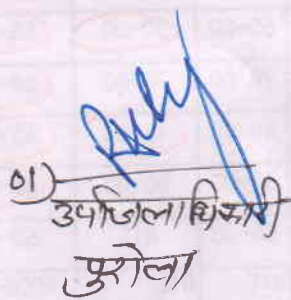 01)
उपजिलाधिकारी
पुरोला